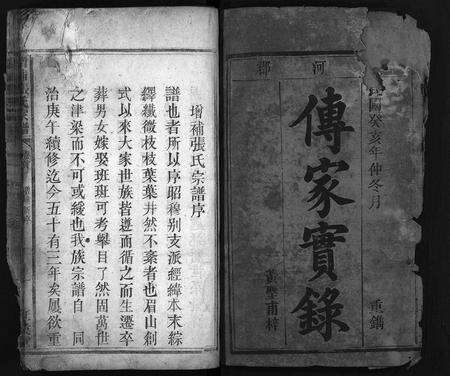 河
郡
民國癸亥年仲冬月
傳家實錄
重鐫
增補張氏宗譜序
譜也者所以序昭穆别支派經緯本末綜
繹纖微枝枝葉葉井然不棄者也眉山創
式以來大家世族皆遵而循之而生遷卒
葬男女嫁娶班班可考舉目了然固萬世
之津梁而不可或緩也我族宗譜自 同
治庚午續修迄今五十有三年矣屢欲重